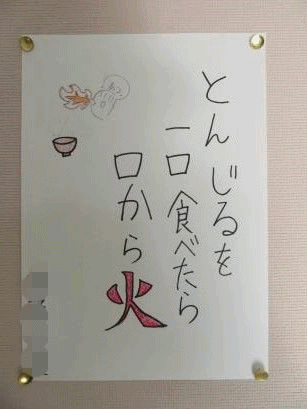 とんじるを
一口食べたら
口から火